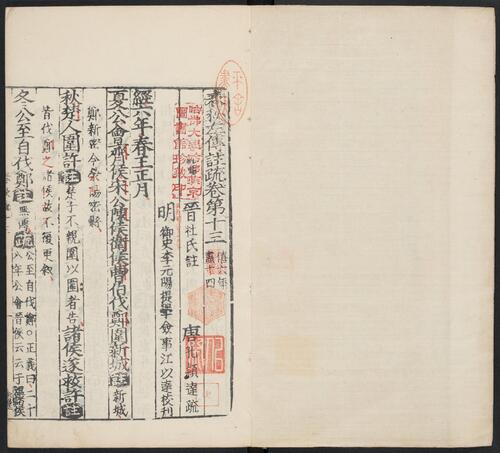 春秋左傳註疏卷第十三
僖六年
盡十四
哈佛大學哈佛燕京
圖書館珍藏印
晉 杜氏註
唐 孔穎達疏
明 御史李元陽提學僉事江以達校刊
經六年春王正月
夏公會齊侯宋公陳侯衛侯曹伯伐鄭圍新城註新城
鄭新密今滎陽密縣
秋楚人圍許註楚子不親圍以圍者告諸侯遂救許註
皆伐鄭之諸侯故不復更敘
冬公至自伐鄭註無傳疏公至自伐鄭○正義曰二十
八年公會晉侯云云于